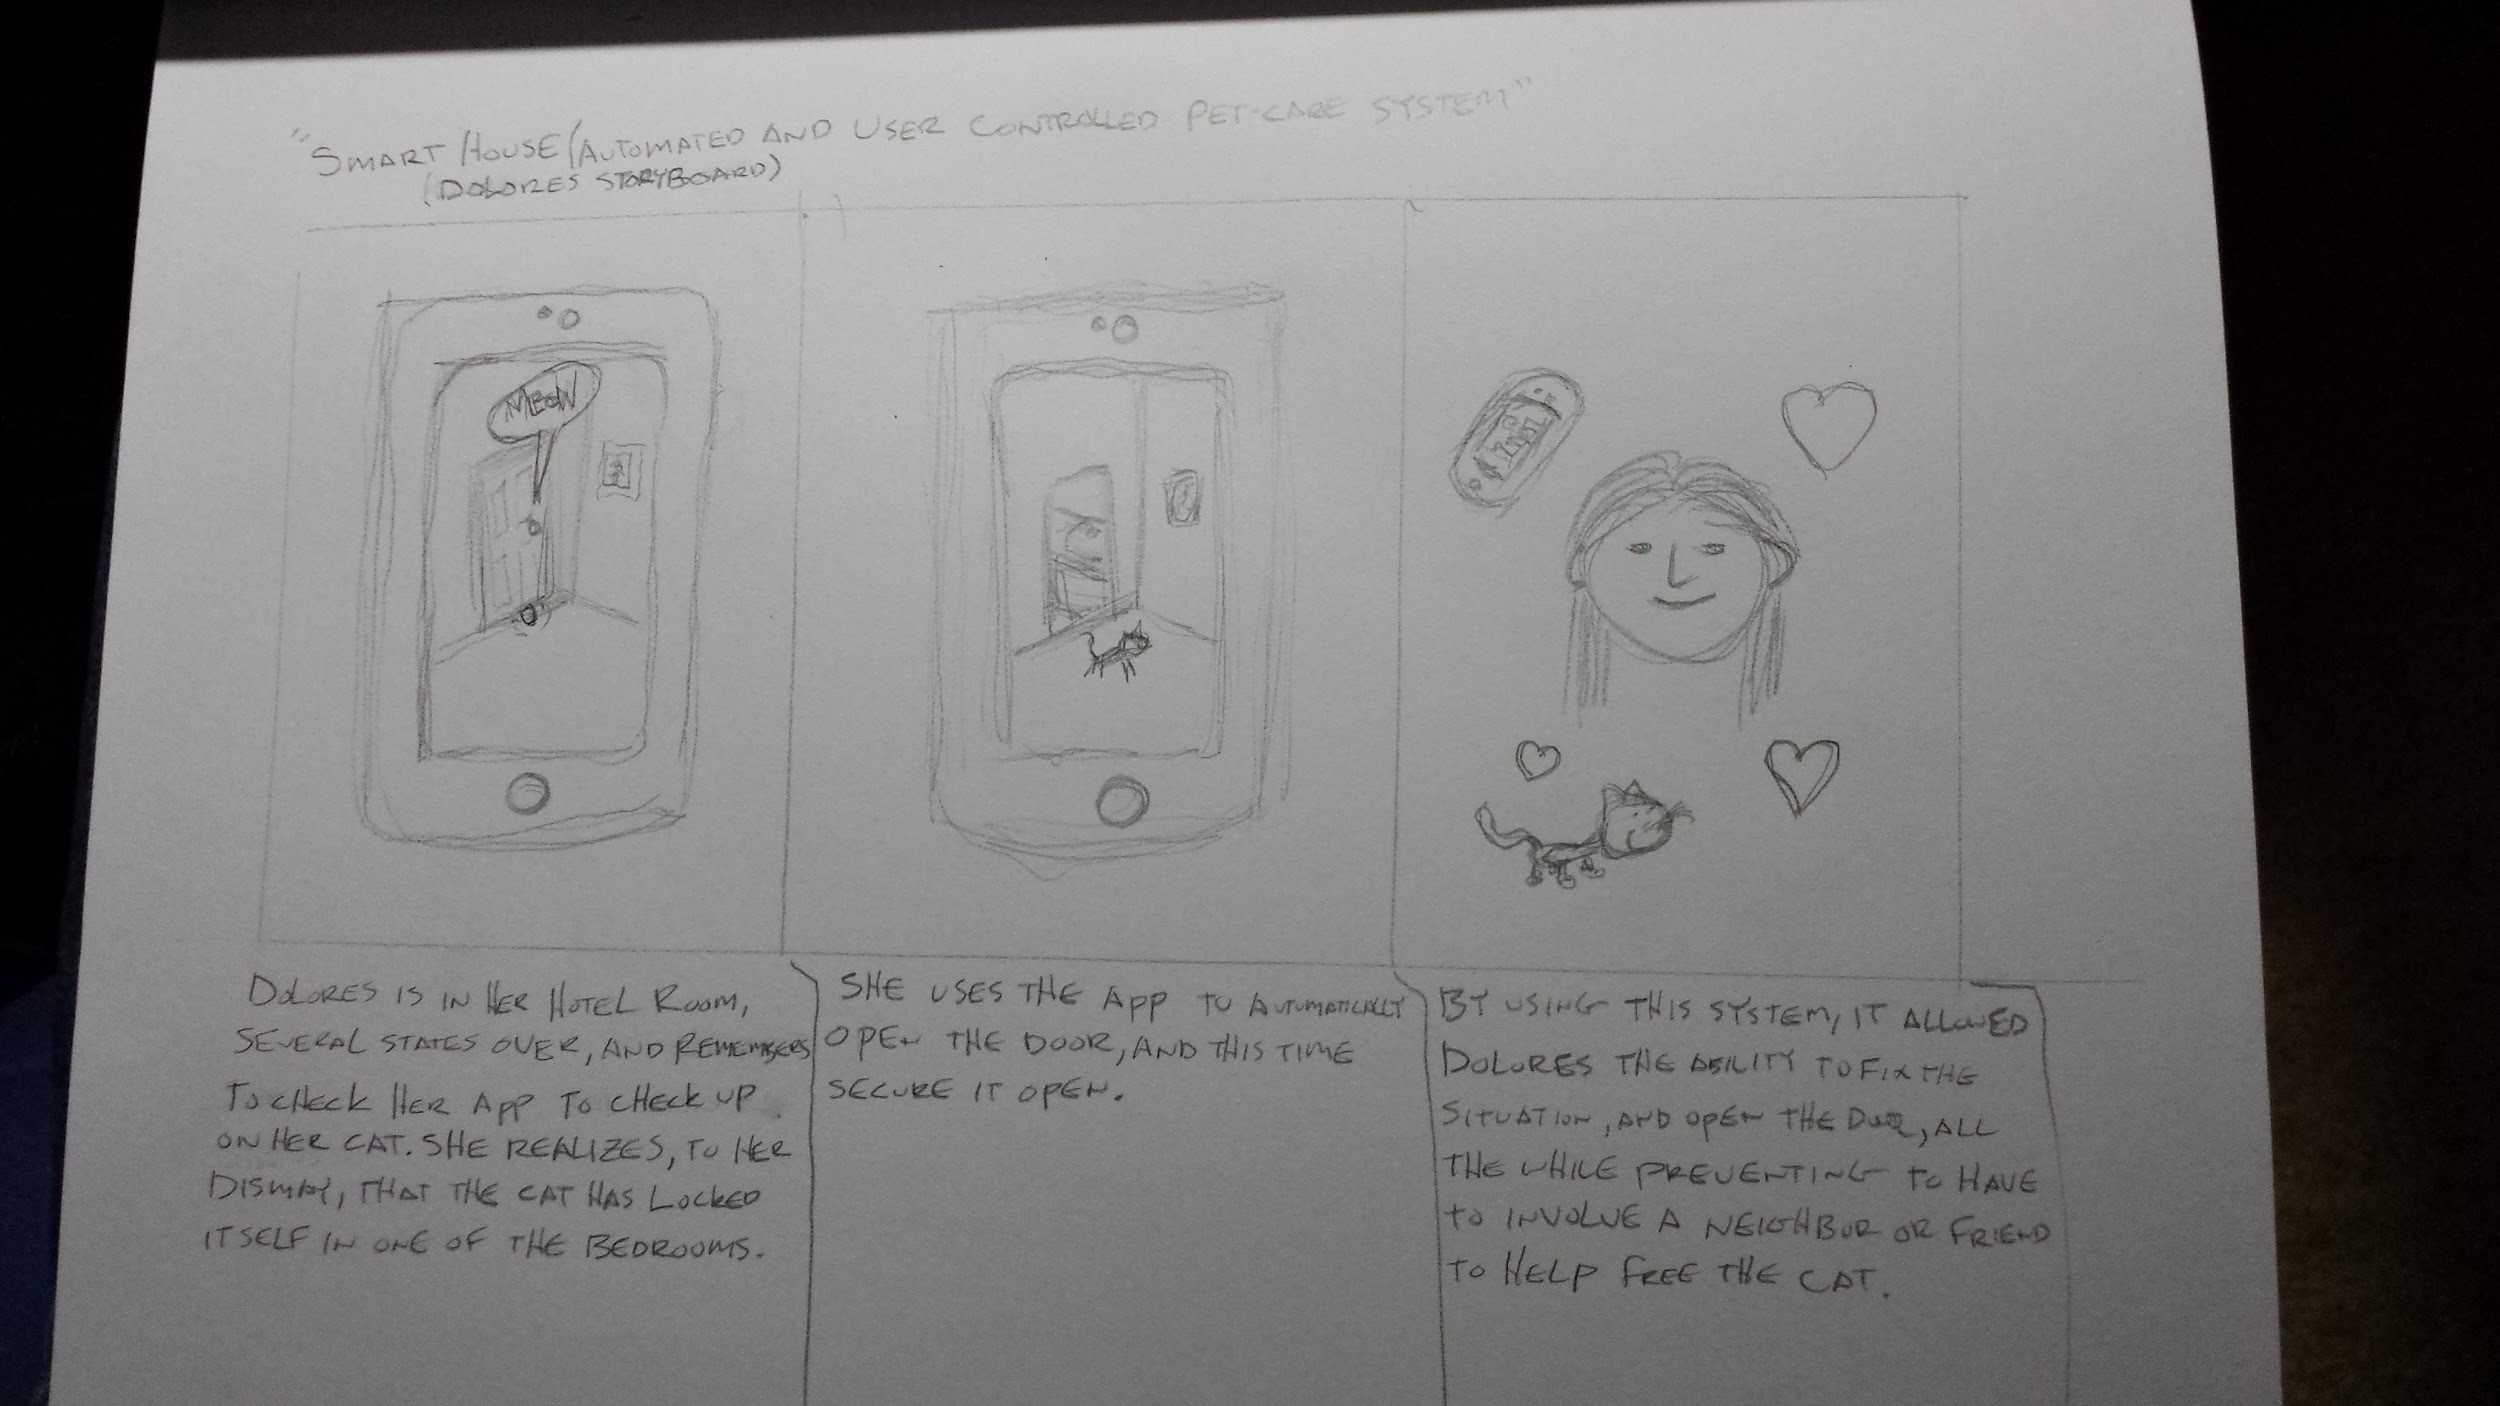 "SMART HOUSE/AUTOMATED AND USER CONTROLLED PET-CARE SYSTEM"
(DOLORES STORYBOARD)
MEOW
DOLORES IS IN HER HOTEL ROOM,
SEVERAL STATES OVER, AND REMEMBERS
TO CHECK HER APP TO CHECK UP
ON HER CAT. SHE REALIZES, TO HER
DISMAY, THAT THE CAT HAS LOCKED
ITSELF IN ONE OF THE BEDROOMS.
SHE USES THE APP TO AUTOMATICALLY
OPEN THE DOOR, AND THIS TIME
SECURE IT OPEN.
BY USING THIS SYSTEM, IT ALLOWED
DOLORES THE ABILITY TO FIX THE
SITUATION, AND OPEN THE DOOR, ALL
THE WHILE PREVENTING TO HAVE
TO INVOLVE A NEIGHBUR OR FRIEND
TO HELP FREE THE CAT.